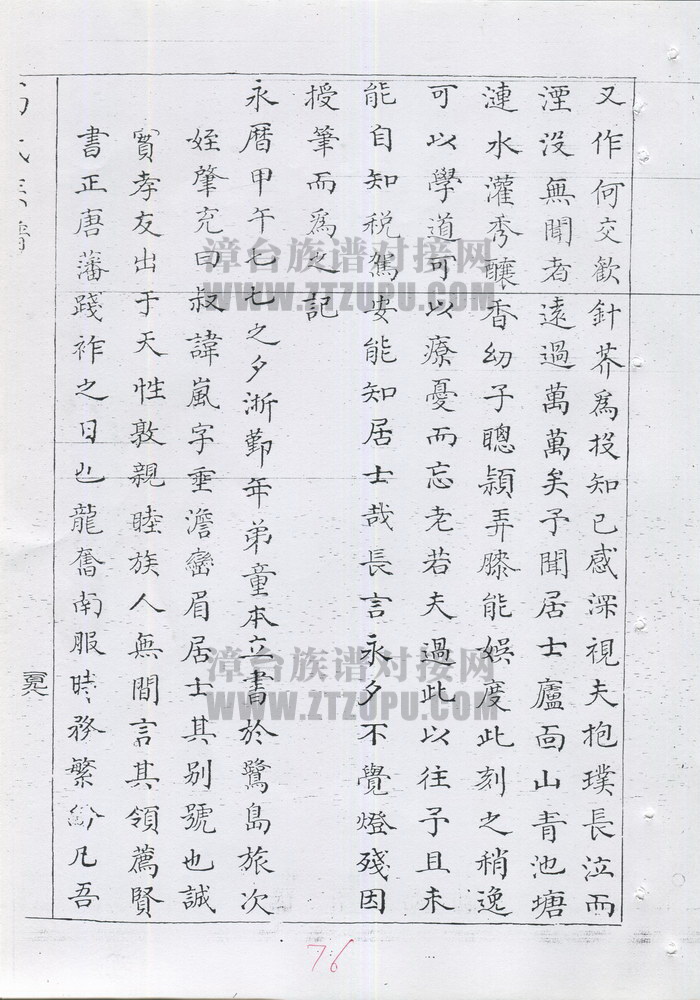 又作何交歡針芥爲投知己感深視夫抱璞長泣而
湮沒無聞者遠過萬萬矣予聞居士廬面山青池塘
漣水灌秀釀香幼子聰頴弄膝能娛度此刻之稍逸
可以學道可以療憂而忘老若夫過此以往予且未
能自知税駕安能知居士哉長言永夕不覺燈殘因
授筆而爲之記
永曆甲午七七之夕浙鄞年弟童本立書於鷺島旅次
姪肇充曰叔諱嵐字霍澹巒眉居士其别號也誠
實孝友出于天性敦親睦族人無間言其領薦賢
書正唐藩踐祚之日也龍奮南服時務繁劇凡吾
漳台族谱对接网
WWW.ZTZUPU.COM
漳台族谱对接网
WWW.ZTZUPU.COM
76